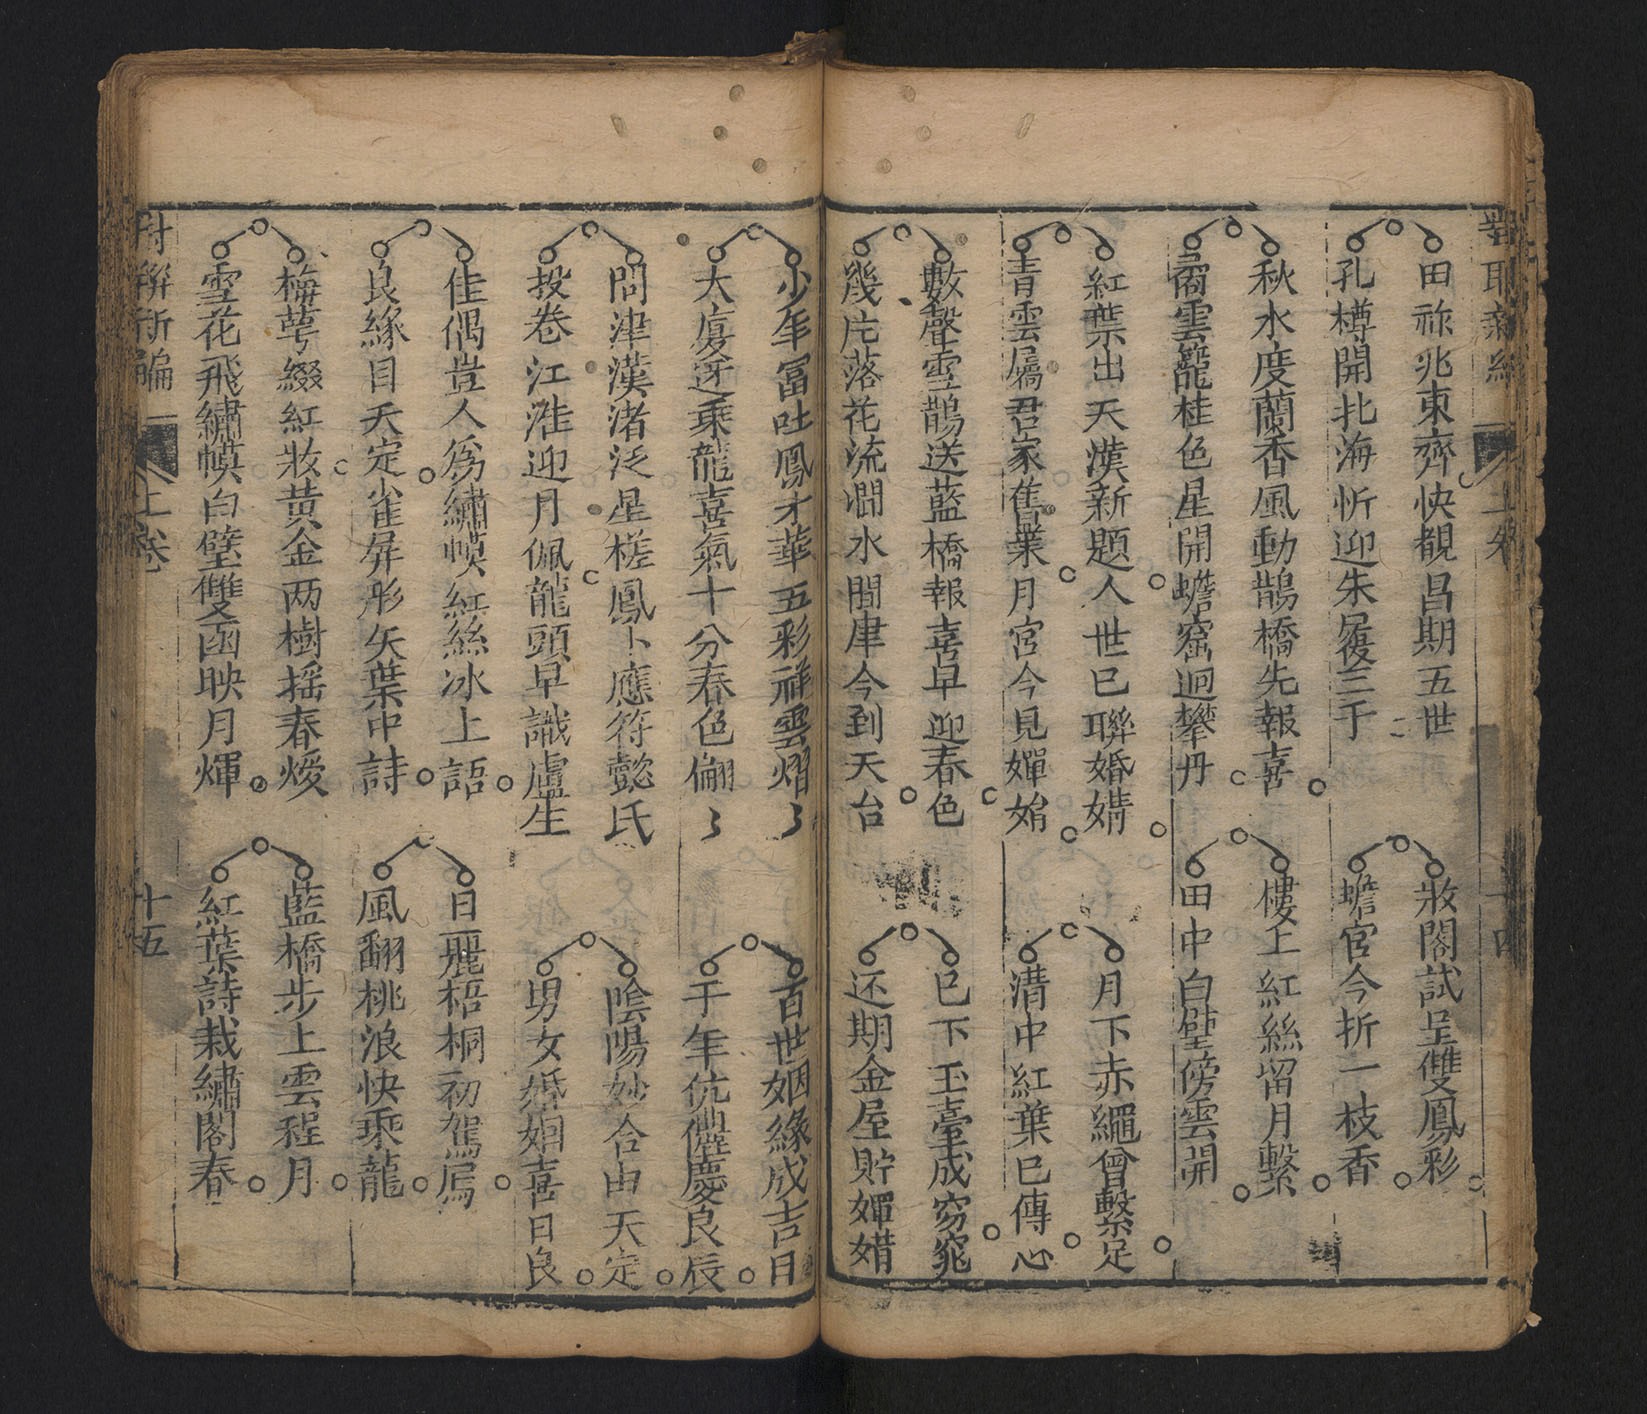 田祢兆東齊快覩昌期五世
孔樽開北海忻迎朱履三千
妝閣試呈雙鳳彩
蟾宮今折一枝香
秋水度蘭香風動鵲橋先報喜
裔雲籠桂色星開蟾窟迥攀丹
樓上紅絲留月繫
田中白璧傍雲開
紅葉出天漢新題人世已聯婚媾
青雲屬君家舊業月宮今見嬋娟
月下赤繩曾繫足
溝中紅葉已傳心
數聲雪鵲送藍橋報喜早迎春色
幾片落花流澗水問津今到天台
已下玉臺成窈窕
还期金屋貯嬋娟
少年富吐鳳才華五彩祥雲熠〻
大廈迓乘龍喜氣十分春色翩〻
百世姻緣成吉日
千年伉儷慶良辰
問津漢渚泛星槎鳳卜應符懿氏
投卷江淮迎月佩龍頭早識盧生
陰陽妙合由天定
男女婚姻喜日良
佳偶豈人為繡幙紅絲冰上語
良緣目天定雀屏彤矢葉中詩
日麗梧桐初駕鳳
風翻桃浪快乘龍
梅萼綴紅妝黃金两樹搖春煖
雪花飛繡幙白璧雙函映月煇
藍橋步上雲程月
紅葉詩栽繡閣春
對聯新編
上卷
十五